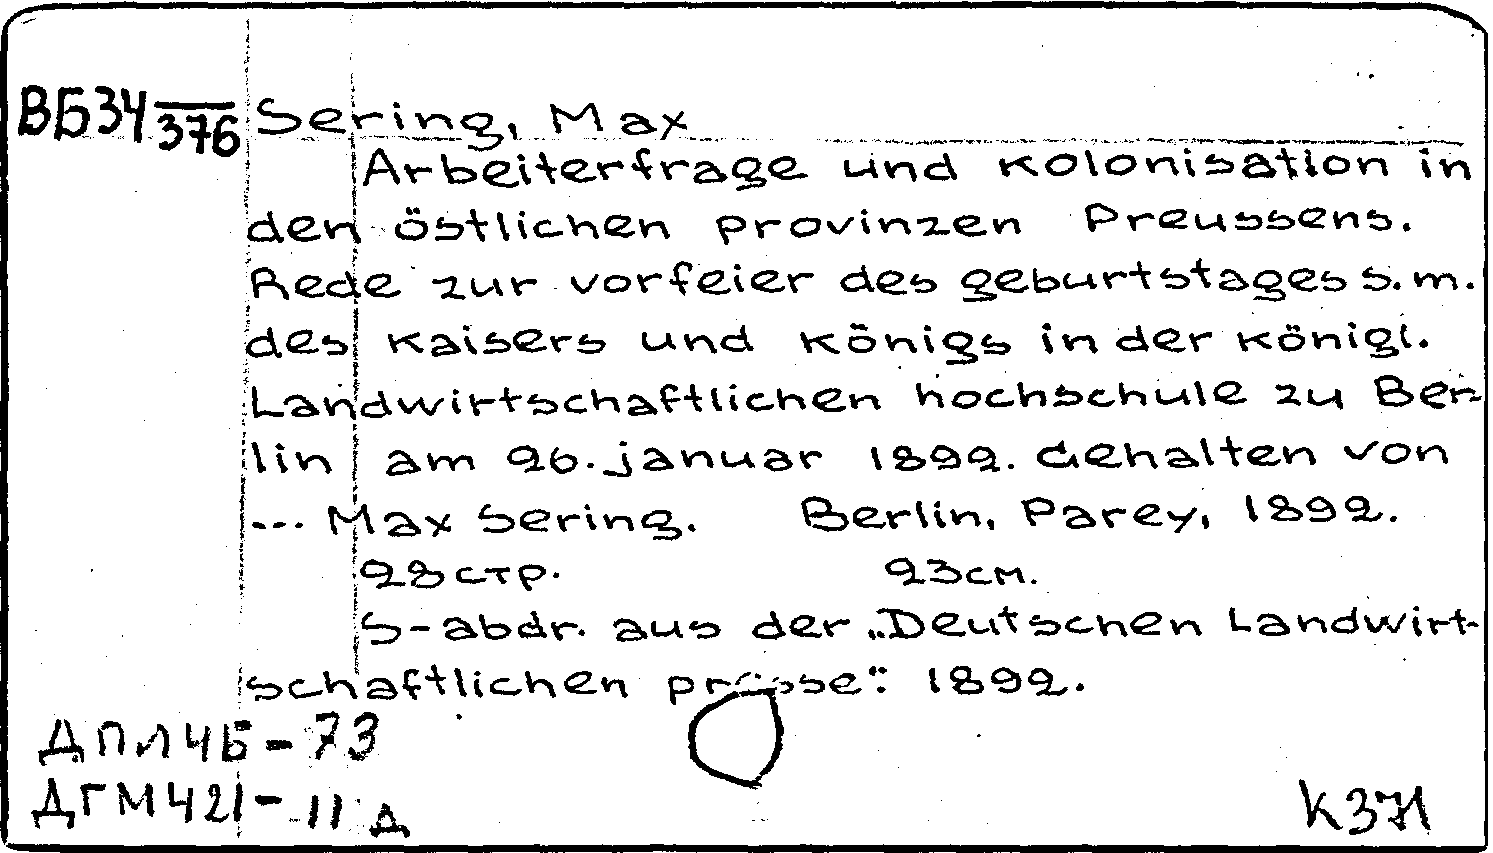 ВБ34/376 Sering, Max
Arbeiterfrage und kolonisation in
den östlichen provinzen Preussens.
Rede zur vorfeier des geburtstages s. m.
des kaisers und königs in der königl.
Landwirtschaftlichen hochschule zu Ber-
lin am 26. januar 1892. Gehalten von
... Max Sering. Berlin, Parey, 1892.
28 стр. 23 см.
S-abdr. aus der „Deutschen Landwirt-
schaftlichen presse“. 1892.
ДПЛ4Б-73
ДГМ421-11 д